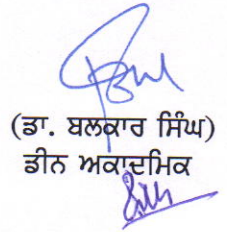 (ਡਾ. ਬਲਕਾਰ ਸਿੰਘ)
ਡੀਨ ਅਕਾਦਮਿਕ